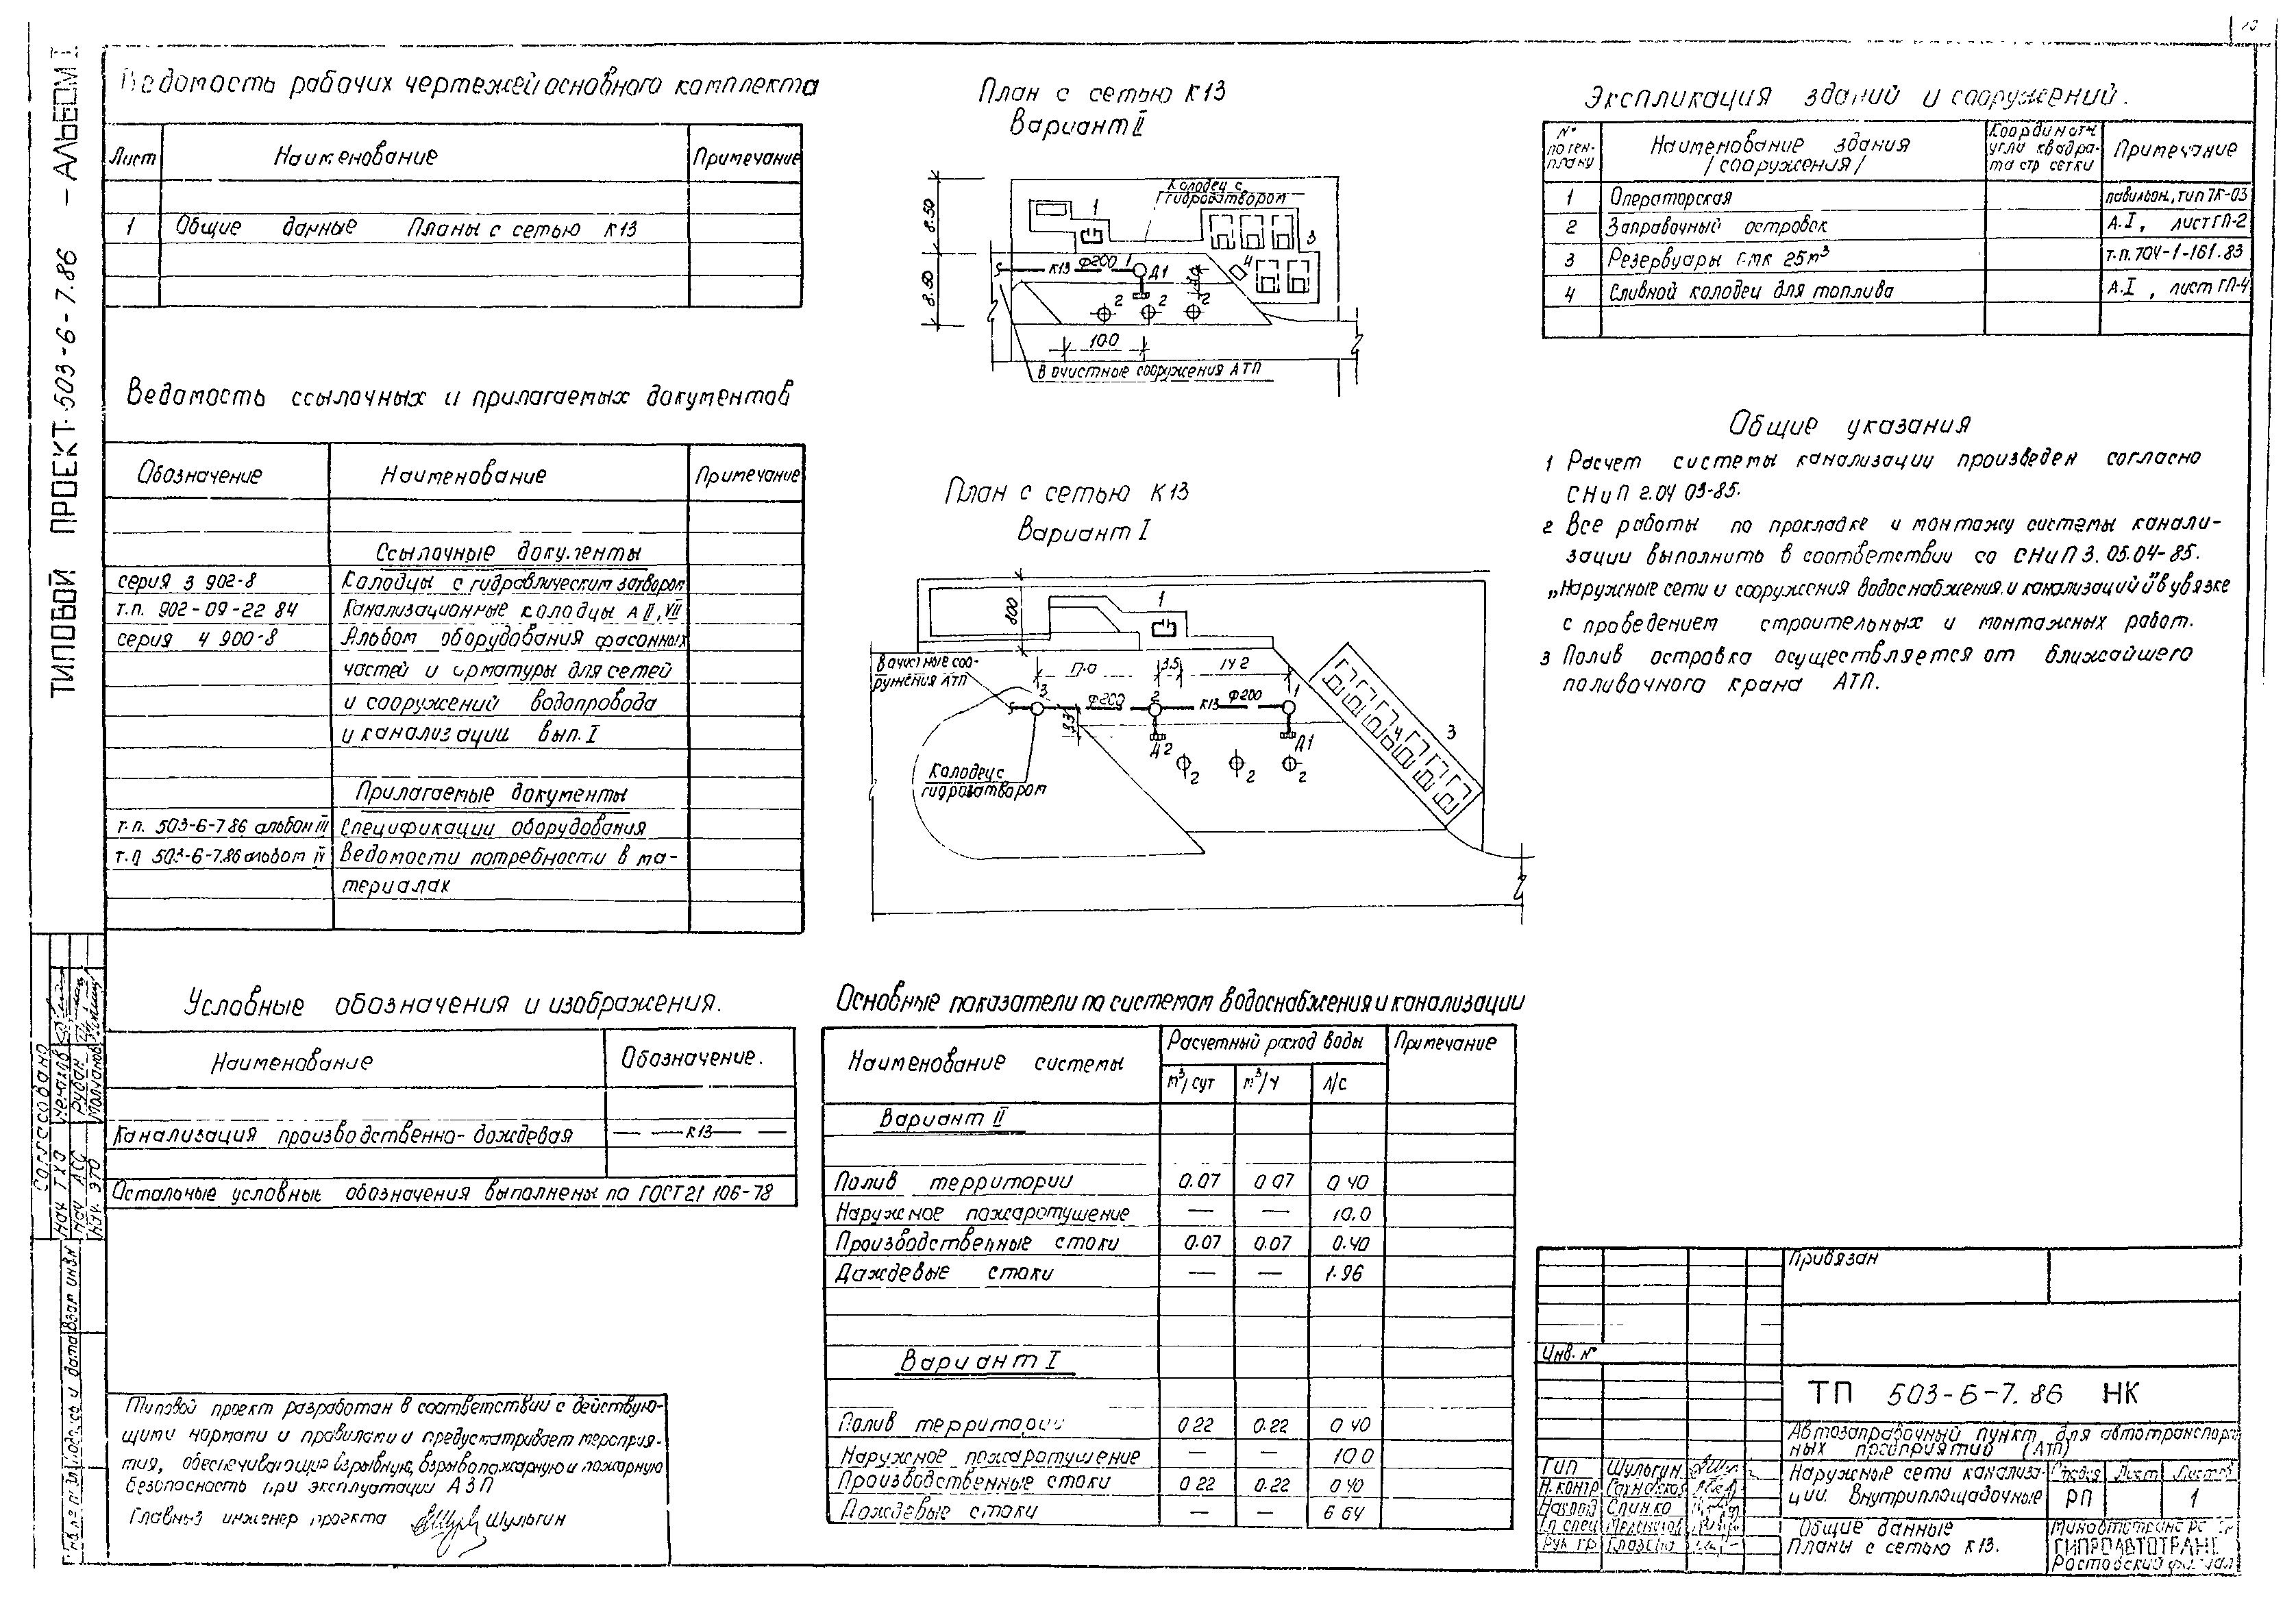 ТИПОВОЙ ПРОЕКТ 503-6-7.86 - АЛЬБОМ I
Ведомость рабочих чертежей основного комплекта
Лист Наименование Примечание
1 Общие данные Планы с сетью К13
Ведомость ссылочных и прилагаемых документов
Обозначение Наименование Примечание
Ссылочные документы
серия 3 902-8 Колодцы с гидравлическим затвором
т.п. 902-09-22 84 Канализационные колодцы А II, VII
серия 4 900-8 Альбом оборудования фасонных
частей и арматуры для сетей
и сооружений водопровода
и канализации вып. I
Прилагаемые документы
т.п. 503-6-7.86 альбом III Спецификации оборудования
т.п 503-6-7.86 альбом IV Ведомости потребности в ма-
териалах
Условные обозначения и изображения.
Наименование Обозначение.
Канализация производственно-дождевая — — К13 — —
Остальные условные обозначения выполнены по ГОСТ 21 106-78
Типовой проект разработан в соответствии с действую-
щими нормами и правилами и предусматривает мероприя-
тия, обеспечивающие взрывную, взрывопожарную и пожарную
безопасность при эксплуатации АЗП
Главный инженер проекта Шульгин
План с сетью К13
Вариант II
Колодец с
гидрозатвором
8.50
8.50
1
3
К13 Ф200 1
Д1
4
2 2 2
10.0
В очистные сооружения АТП
План с сетью К13
Вариант I
800
1
В очистные соо-
ружения АТП
3.5 14 2
3 Ф200 2 К13 Ф200 1
Д2 Д1
4
3
2 2 2
Колодец с
гидрозатвором
Основные показатели по системам водоснабжения и канализации
Наименование системы Расчетный расход воды Примечание
м³/сут м³/ч л/с
Вариант II
Полив территории 0.07 0 07 0 40
Наружное пожаротушение — — 10.0
Производственные стоки 0.07 0.07 0.40
Дождевые стоки — — 1.96
Вариант I
Полив территории 0 22 0.22 0 40
Наружное пожаротушение — — 10 0
Производственные стоки 0 22 0.22 0 40
Дождевые стоки — — 6 64
Экспликация зданий и сооружений.
№ по ген-плану Наименование здания /сооружения/ Координаты угла квадра-та стр сетки Примечание
1 Операторская павильон, тип 7К-03
2 Заправочный островок А.I, лист ГП-2
3 Резервуары емк 25м³ т.п. 704-1-161.83
4 Сливной колодец для топлива А.I, лист ГП-4
Общие указания
1 Расчет системы канализации произведен согласно
СНиП 2.04 03-85.
2 Все работы по прокладке и монтажу системы канали-
зации выполнить в соответствии со СНиП 3.05.04-85.
„Наружные сети и сооружения водоснабжения и канализаций" в увязке
с проведением строительных и монтажных работ.
3 Полив островка осуществляется от ближайшего
поливочного крана АТП.
Привязан
Инв. №
ТП 503-6-7.86 НК
Автозаправочный пункт для автотранспорт
ных предприятий (АТП)
Наружные сети канализа-
ции. Внутриплощадочные
Стадия Лист Листов
РП 1
Общие данные
Планы с сетью К13.
Минавтотранс
ГИПРОАВТОТРАНС
Ростовский филиал
ГИП Шульгин
Н. контр
Нач под Слинко
Гл спец
Рук гр
Согласовано
Нач ТХО
Нач АСС
Нач. ЭТО Молчанов